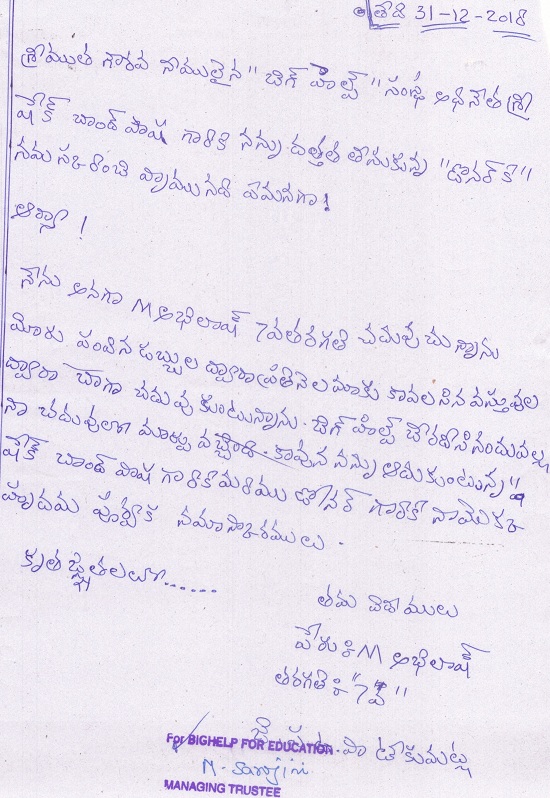 తేది 31-12-2018
శ్రీయుత గౌరవ నీయులైన "బిగ్ హెల్ప్" సంస్థ అధినేత శ్రీ
షేక్ చాంద్ పాష గారికి నన్ను దత్తత తీసుకున్న "డొనర్ కి"
నమస్కరించి వ్రాయునది ఏమనగా!
ఆర్యా!
నేను అనగా M అభిలాష్ 7వతరగతి చదువు చున్నాను
మీరు పంపిన డబ్బుల ద్వారా ప్రతినెల మాకు కావలసిన వస్తువుల
ద్వారా బాగా చదువు కుంటున్నాను. బిగ్ హెల్ప్
నా చదువులో మార్పు వచ్చింది. కావున నన్ను ఆదుకుంటున్న"
షేక్ చాంద్ పాష గారికి మరియు డోనర్ గారికి నాయొక్క
హృదయ పూర్వక నమస్కారములు.
కృతజ్ఞతలతో......
తమ విదేయులు
పేరు: M అభిలాష్
తరగతి: "7వ"
జె. ప. ఉ. పా తాకుమట్ల
For BIGHELP FOR EDUCATION
N. Sarojini
MANAGING TRUSTEE